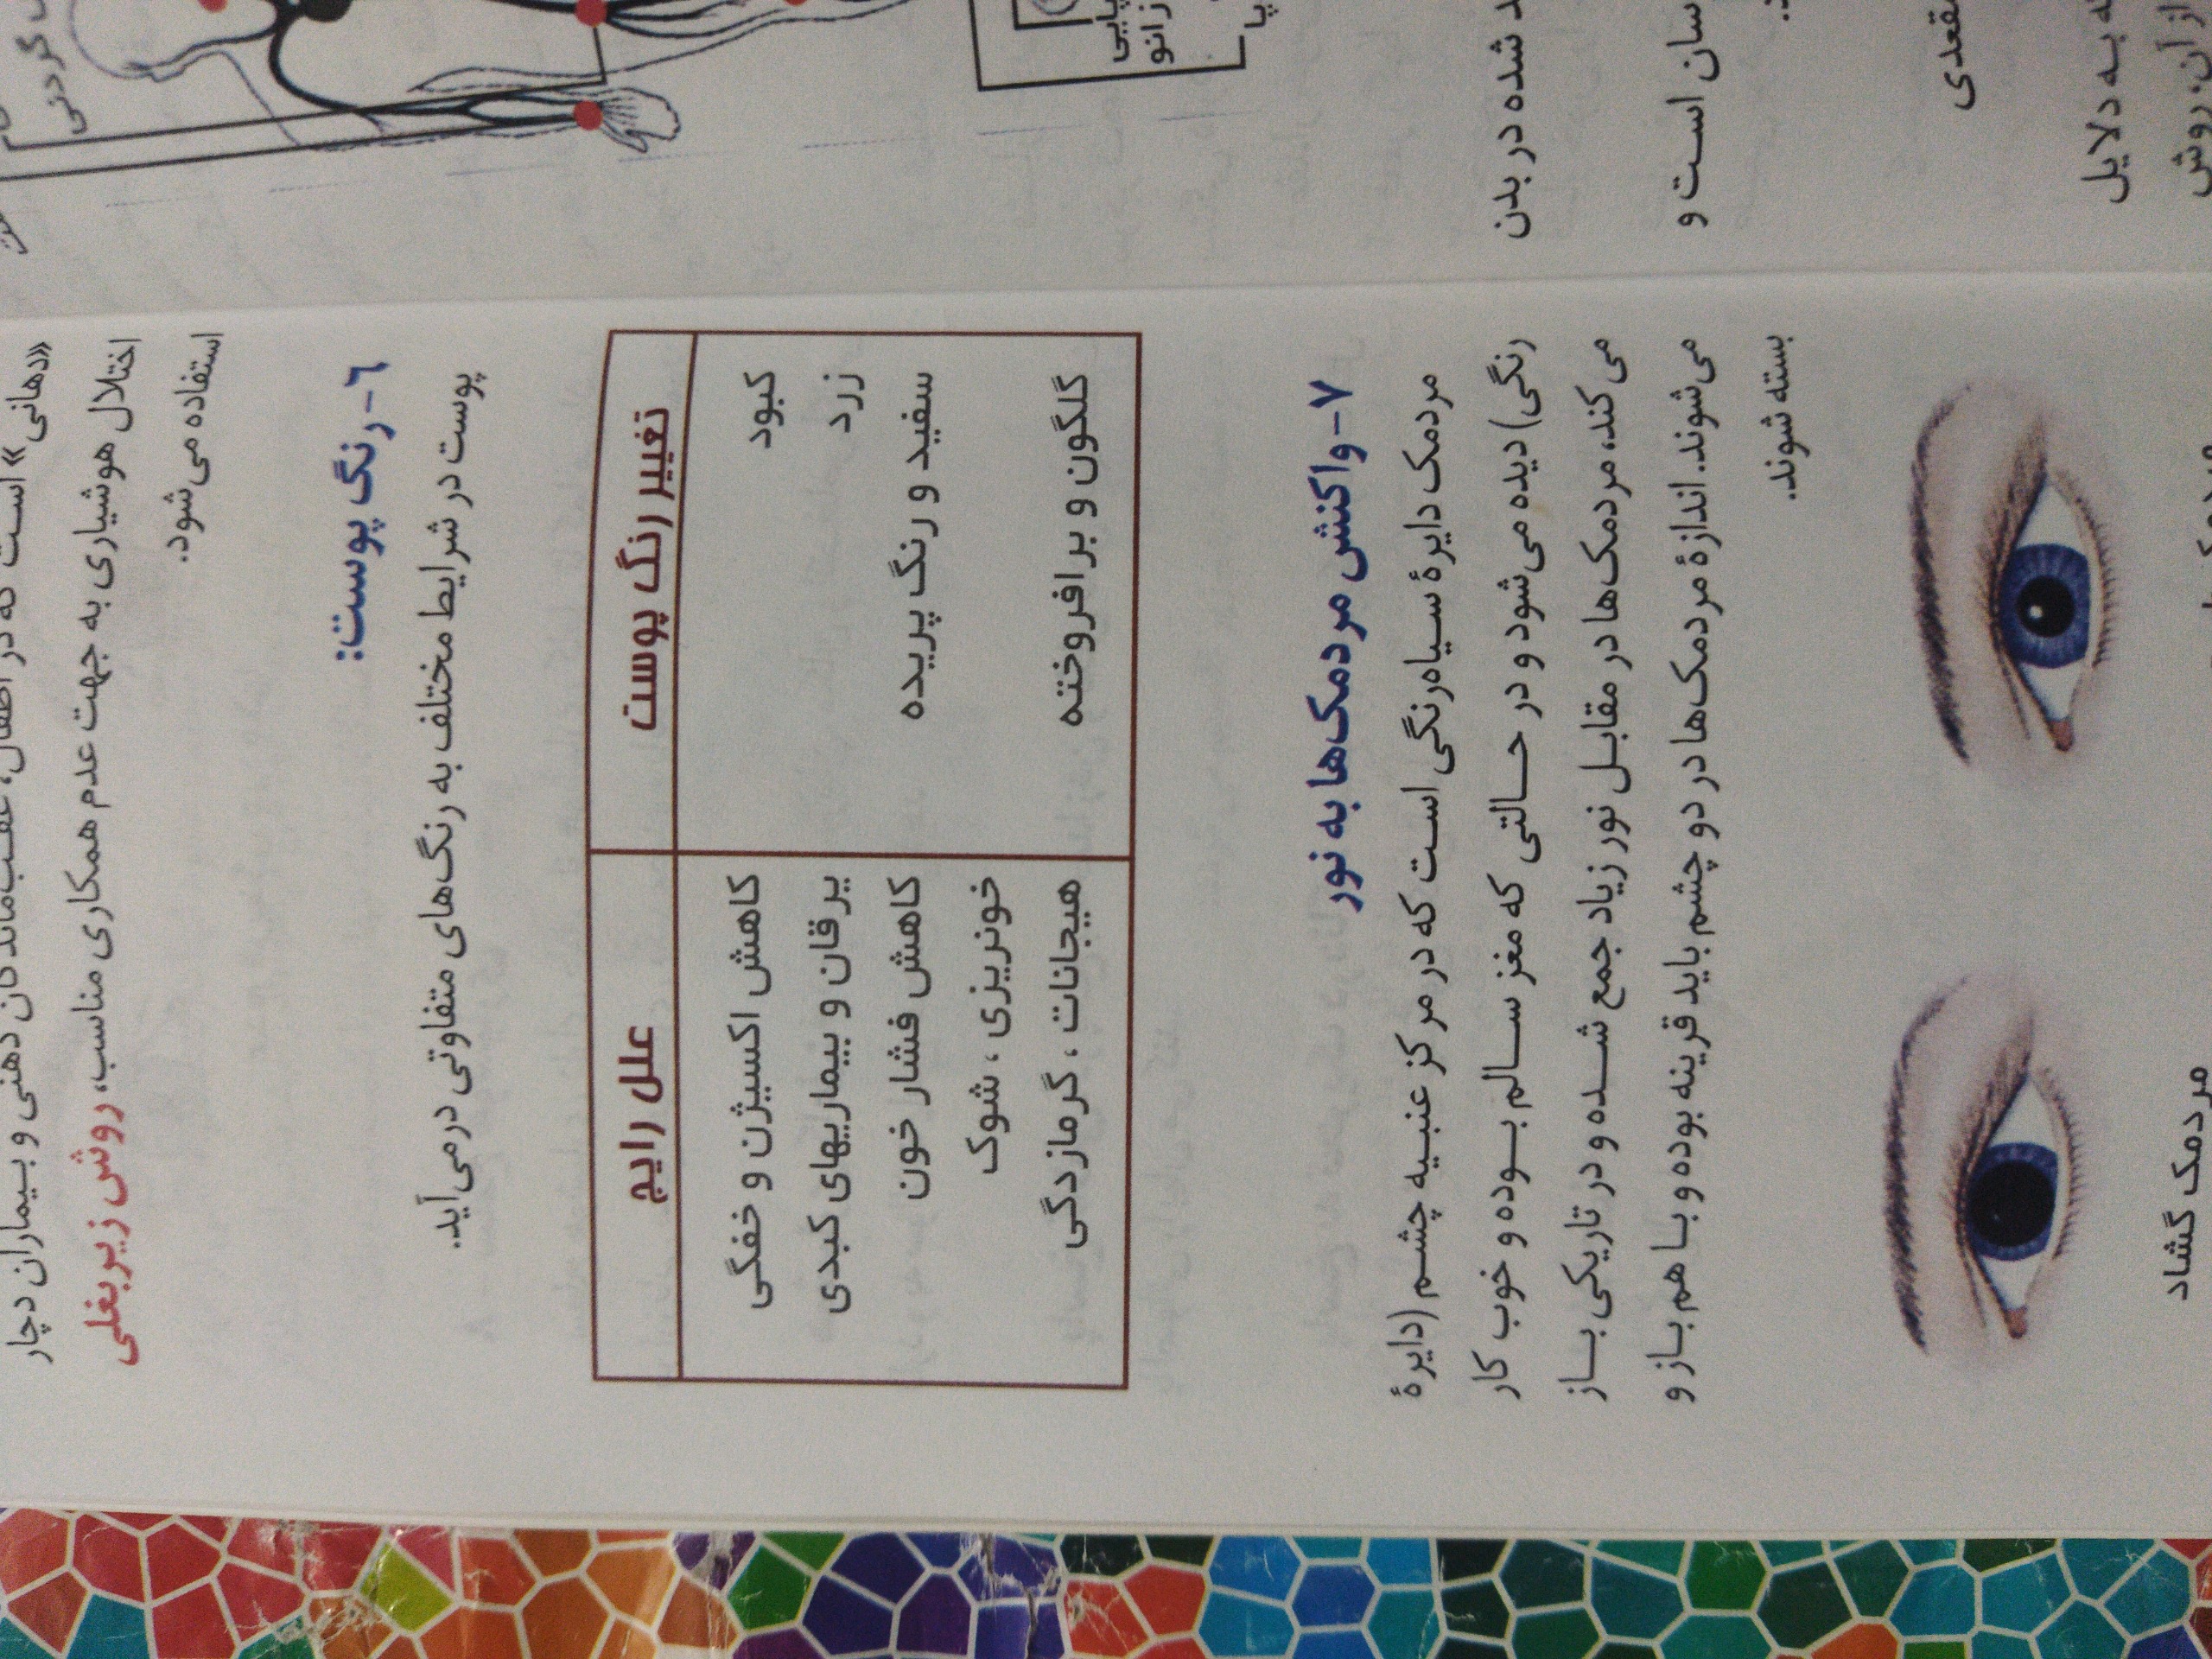 «دهانی» است که در اطفال، عقب‌ماندگان ذهنی و بیماران دچار
اختلال هوشیاری به جهت عدم همکاری مناسب، روش زیربغلی
استفاده می‌شود.
۶-رنگ پوست:
پوست در شرایط مختلف به رنگ‌های متفاوتی درمی‌آید.
تغییر رنگ پوست علل رایج
کبود کاهش اکسیژن و خفگی
زرد یرقان و بیماریهای کبدی
سفید و رنگ پریده کاهش فشار خون
خونریزی ، شوک
گلگون و برافروخته هیجانات ، گرمازدگی
۷-واکنش مردمک‌ها به نور
مردمک دایرهٔ سیاه‌رنگی است که در مرکز عنبیه چشم (دایرهٔ
رنگی) دیده می‌شود و در حالتی که مغز سالم بوده و خوب کار
می‌کند، مردمک‌ها در مقابل نور زیاد جمع شده و در تاریکی باز
می‌شوند. اندازهٔ مردمک‌ها در دو چشم باید قرینه بوده و با هم باز و
بسته شوند.
مردمک گشاد
گردنی
پایی
زانو
پا
شده در بدن
سان است و
به دلایل
از آن، روش